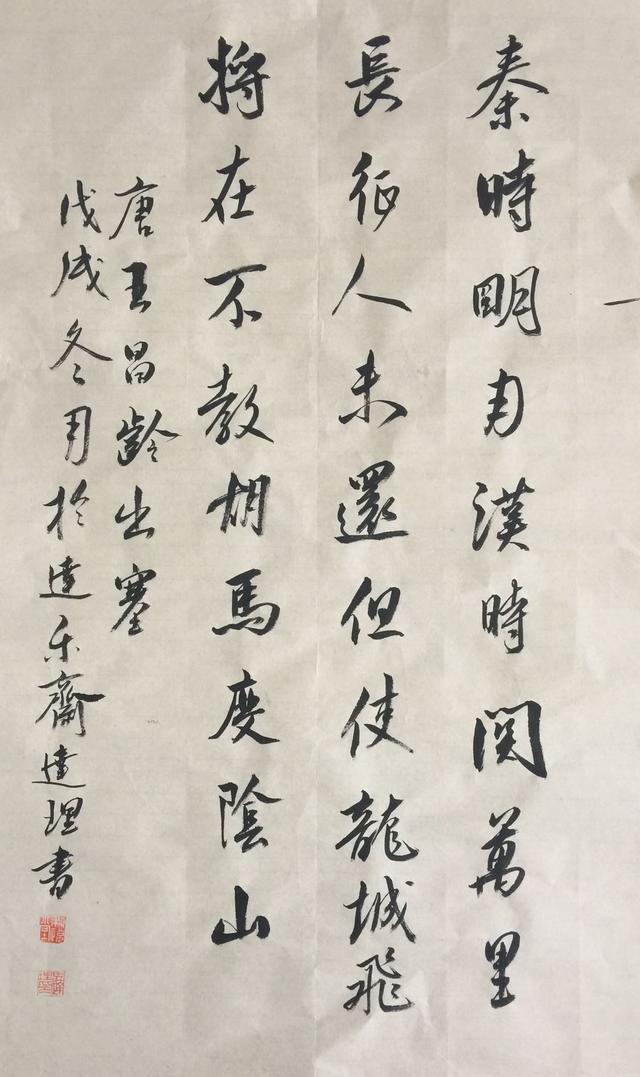 秦時明月漢時関萬里
長征人未還但使龍城飛
將在不教胡馬度陰山
唐王昌齡出塞
戊戌冬月於達樂齋達理書